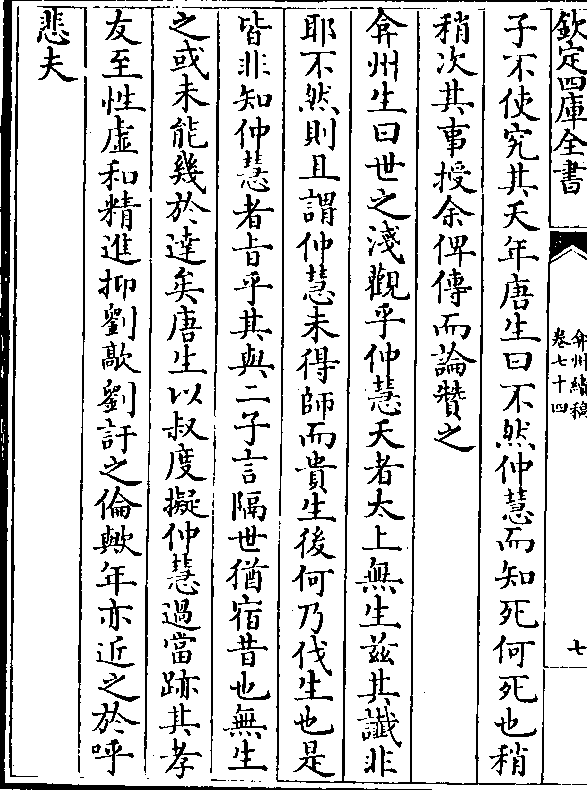 欽定四庫全書
弇州續稿
卷七十四
七
子不使究其天年唐生曰不然仲慧而知死何死也稍
稍次其事授余俾傳而論贊之
弇州生曰世之淺觀乎仲慧夭者太上無生兹其讖非
耶不然則且謂仲慧未得師而貴生後何乃伐生也是
皆非知仲慧者旨乎其與二子言隔世猶宿昔也無生
之或未能幾於達矣唐生以叔度擬仲慧過當跡其孝
友至性虚和精進抑劉歊劉訏之倫歟年亦近之於呼
悲夫